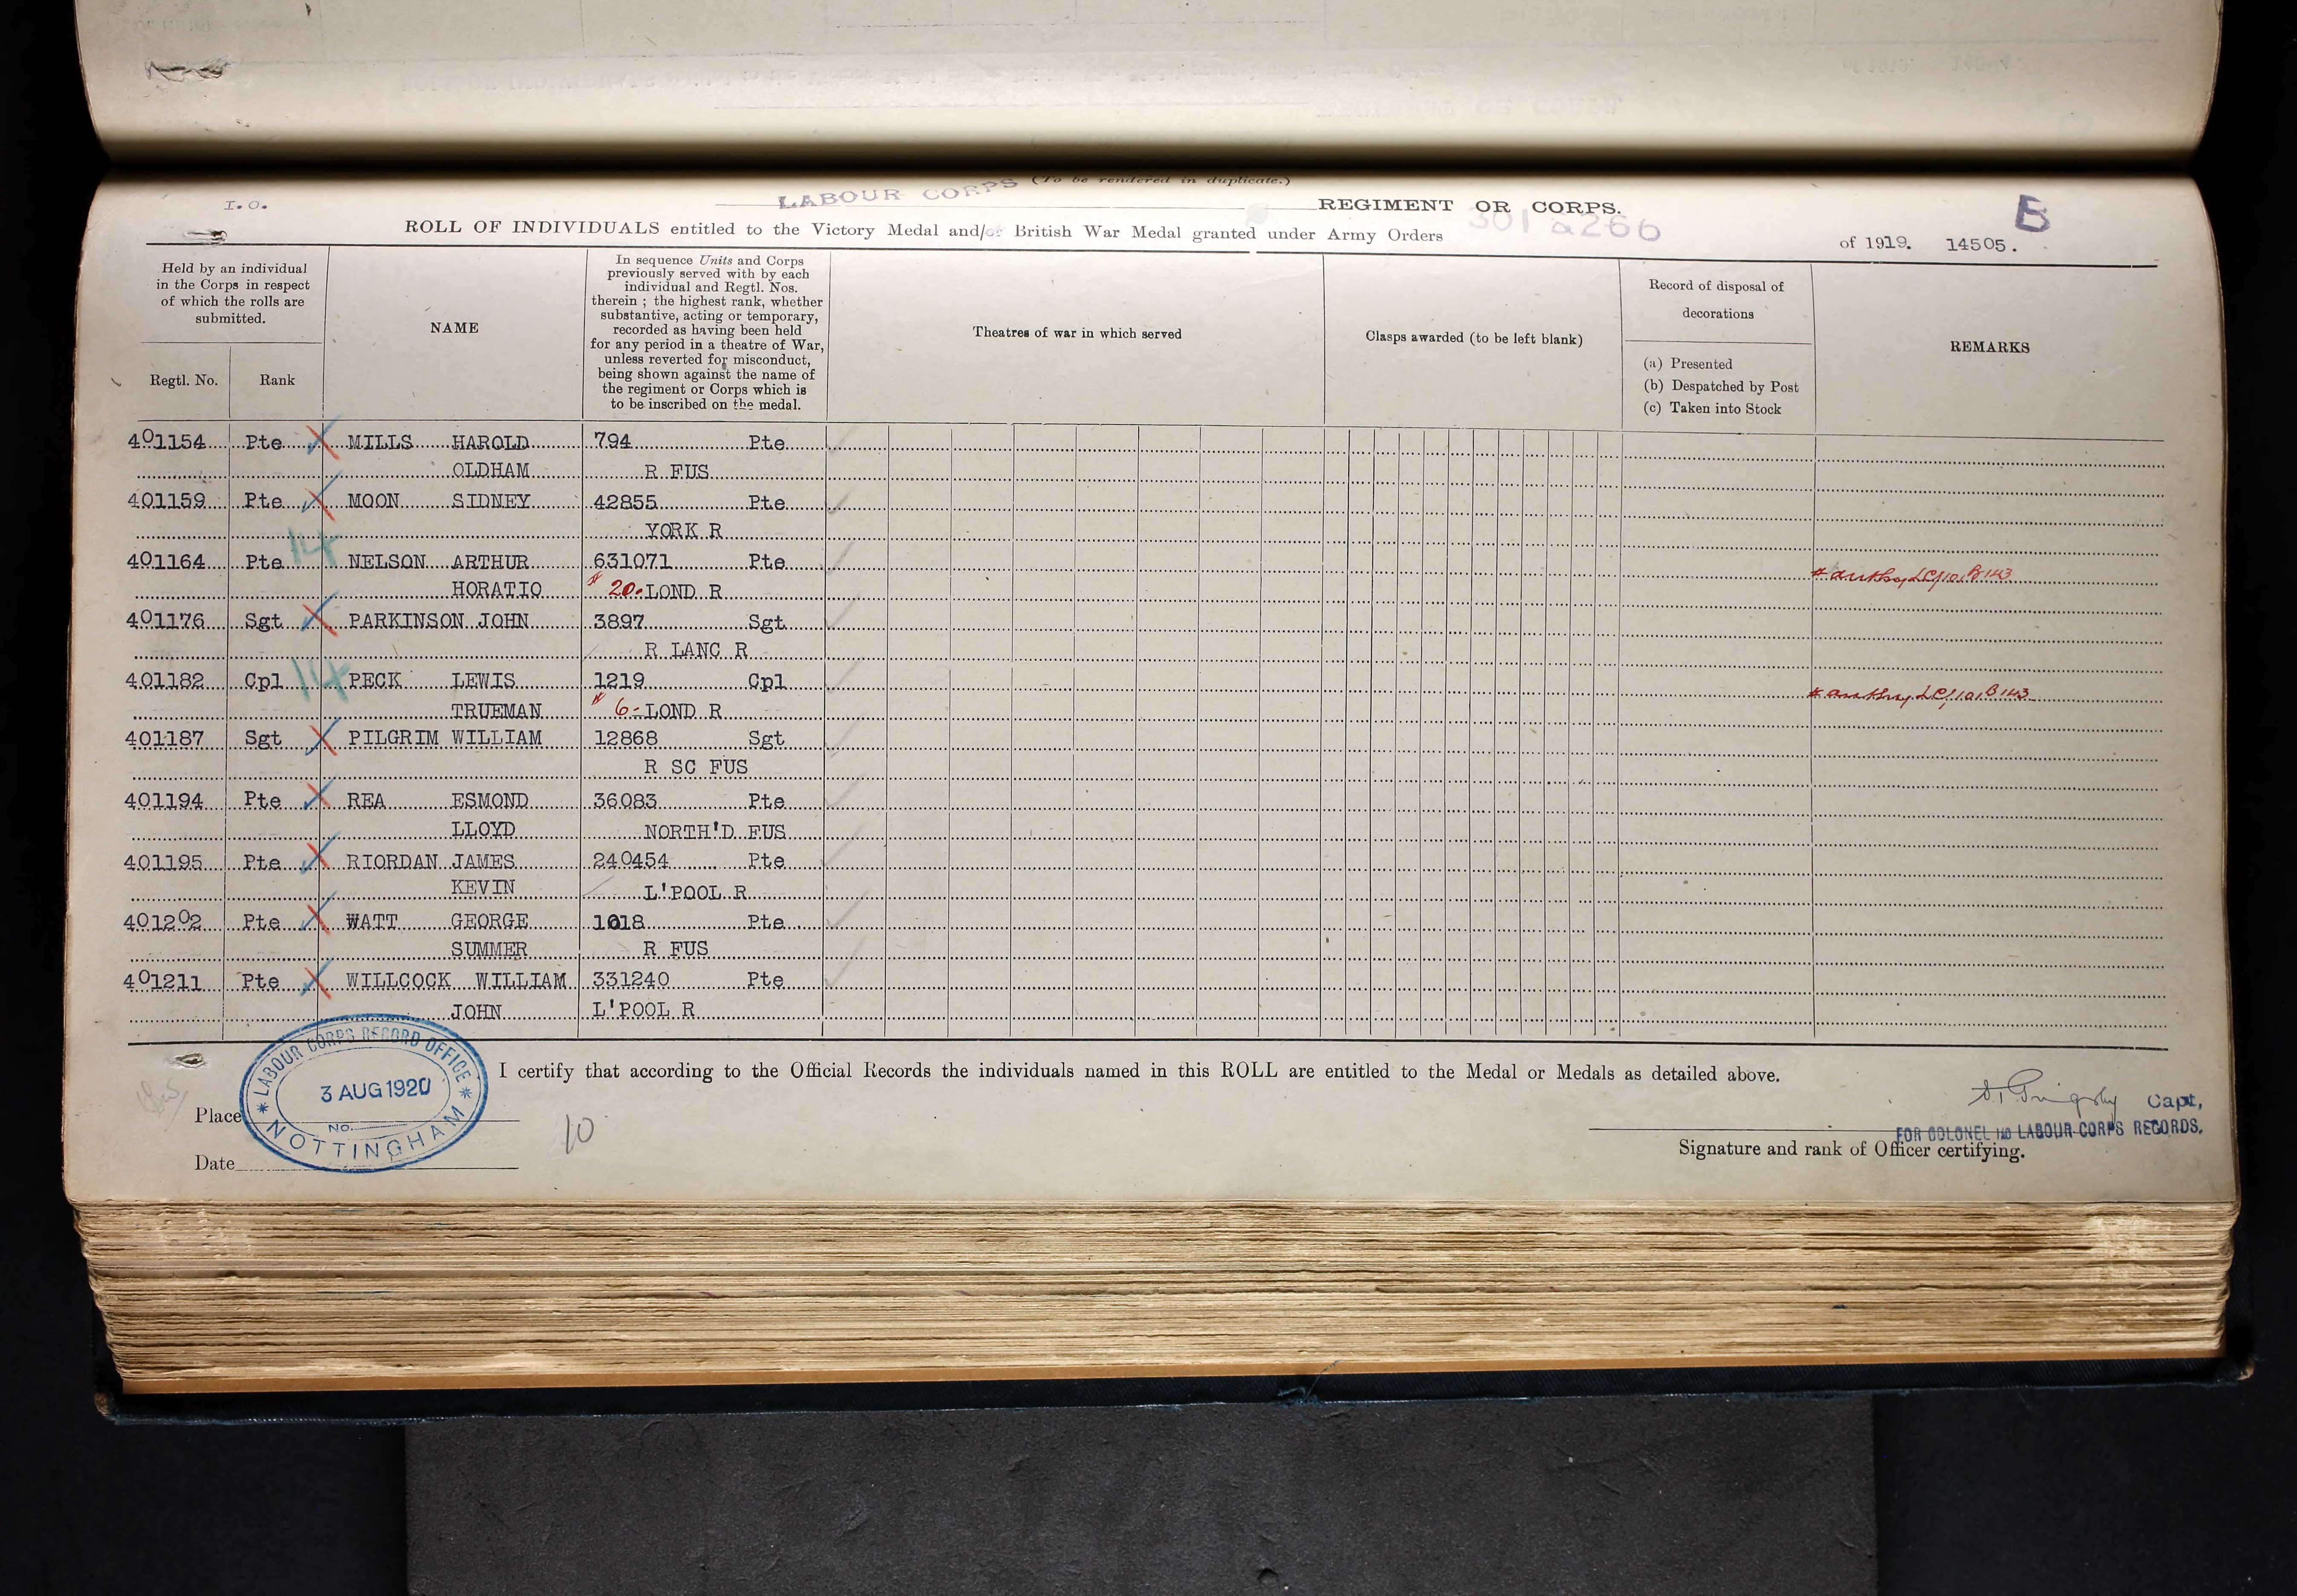 (To be rendered in duplicate.)
I.O.
LABOUR CORPS REGIMENT OR CORPS.
B
ROLL OF INDIVIDUALS entitled to the Victory Medal and/or British War Medal granted under Army Orders 301 & 266 of 1919. 14505.
Held by an individual
in the Corps in respect
of which the rolls are
submitted.
Regtl. No. Rank
NAME
In sequence Units and Corps
previously served with by each
individual and Regtl. Nos.
therein ; the highest rank, whether
substantive, acting or temporary,
recorded as having been held
for any period in a theatre of War,
unless reverted for misconduct,
being shown against the name of
the regiment or Corps which is
to be inscribed on the medal.
Theatres of war in which served
Clasps awarded (to be left blank)
Record of disposal of
decorations
(a) Presented
(b) Despatched by Post
(c) Taken into Stock
REMARKS
401154 Pte MILLS HAROLD 794 Pte
OLDHAM R FUS
401159 Pte MOON SIDNEY 42855 Pte
YORK R
14
401164 Pte NELSON ARTHUR 631071 Pte
HORATIO 20. LOND R
401176 Sgt PARKINSON JOHN 3897 Sgt
R LANC R
401182 Cpl 14 PECK LEWIS 1219 Cpl
TRUEMAN 6- LOND R
401187 Sgt PILGRIM WILLIAM 12868 Sgt
R SC FUS
401194 Pte REA ESMOND 36083 Pte
LLOYD NORTH'D FUS
401195 Pte RIORDAN JAMES 240454 Pte
KEVIN L'POOL R
401202 Pte WATT GEORGE 1018 Pte
SUMMER R FUS
401211 Pte WILLCOCK WILLIAM 331240 Pte
JOHN L'POOL R
LABOUR CORPS RECORD OFFICE
3 AUG 1920
NO.
NOTTINGHAM
I certify that according to the Official Records the individuals named in this ROLL are entitled to the Medal or Medals as detailed above.
Place
10
Date
Capt,
FOR COLONEL i/c LABOUR CORPS RECORDS.
Signature and rank of Officer certifying.